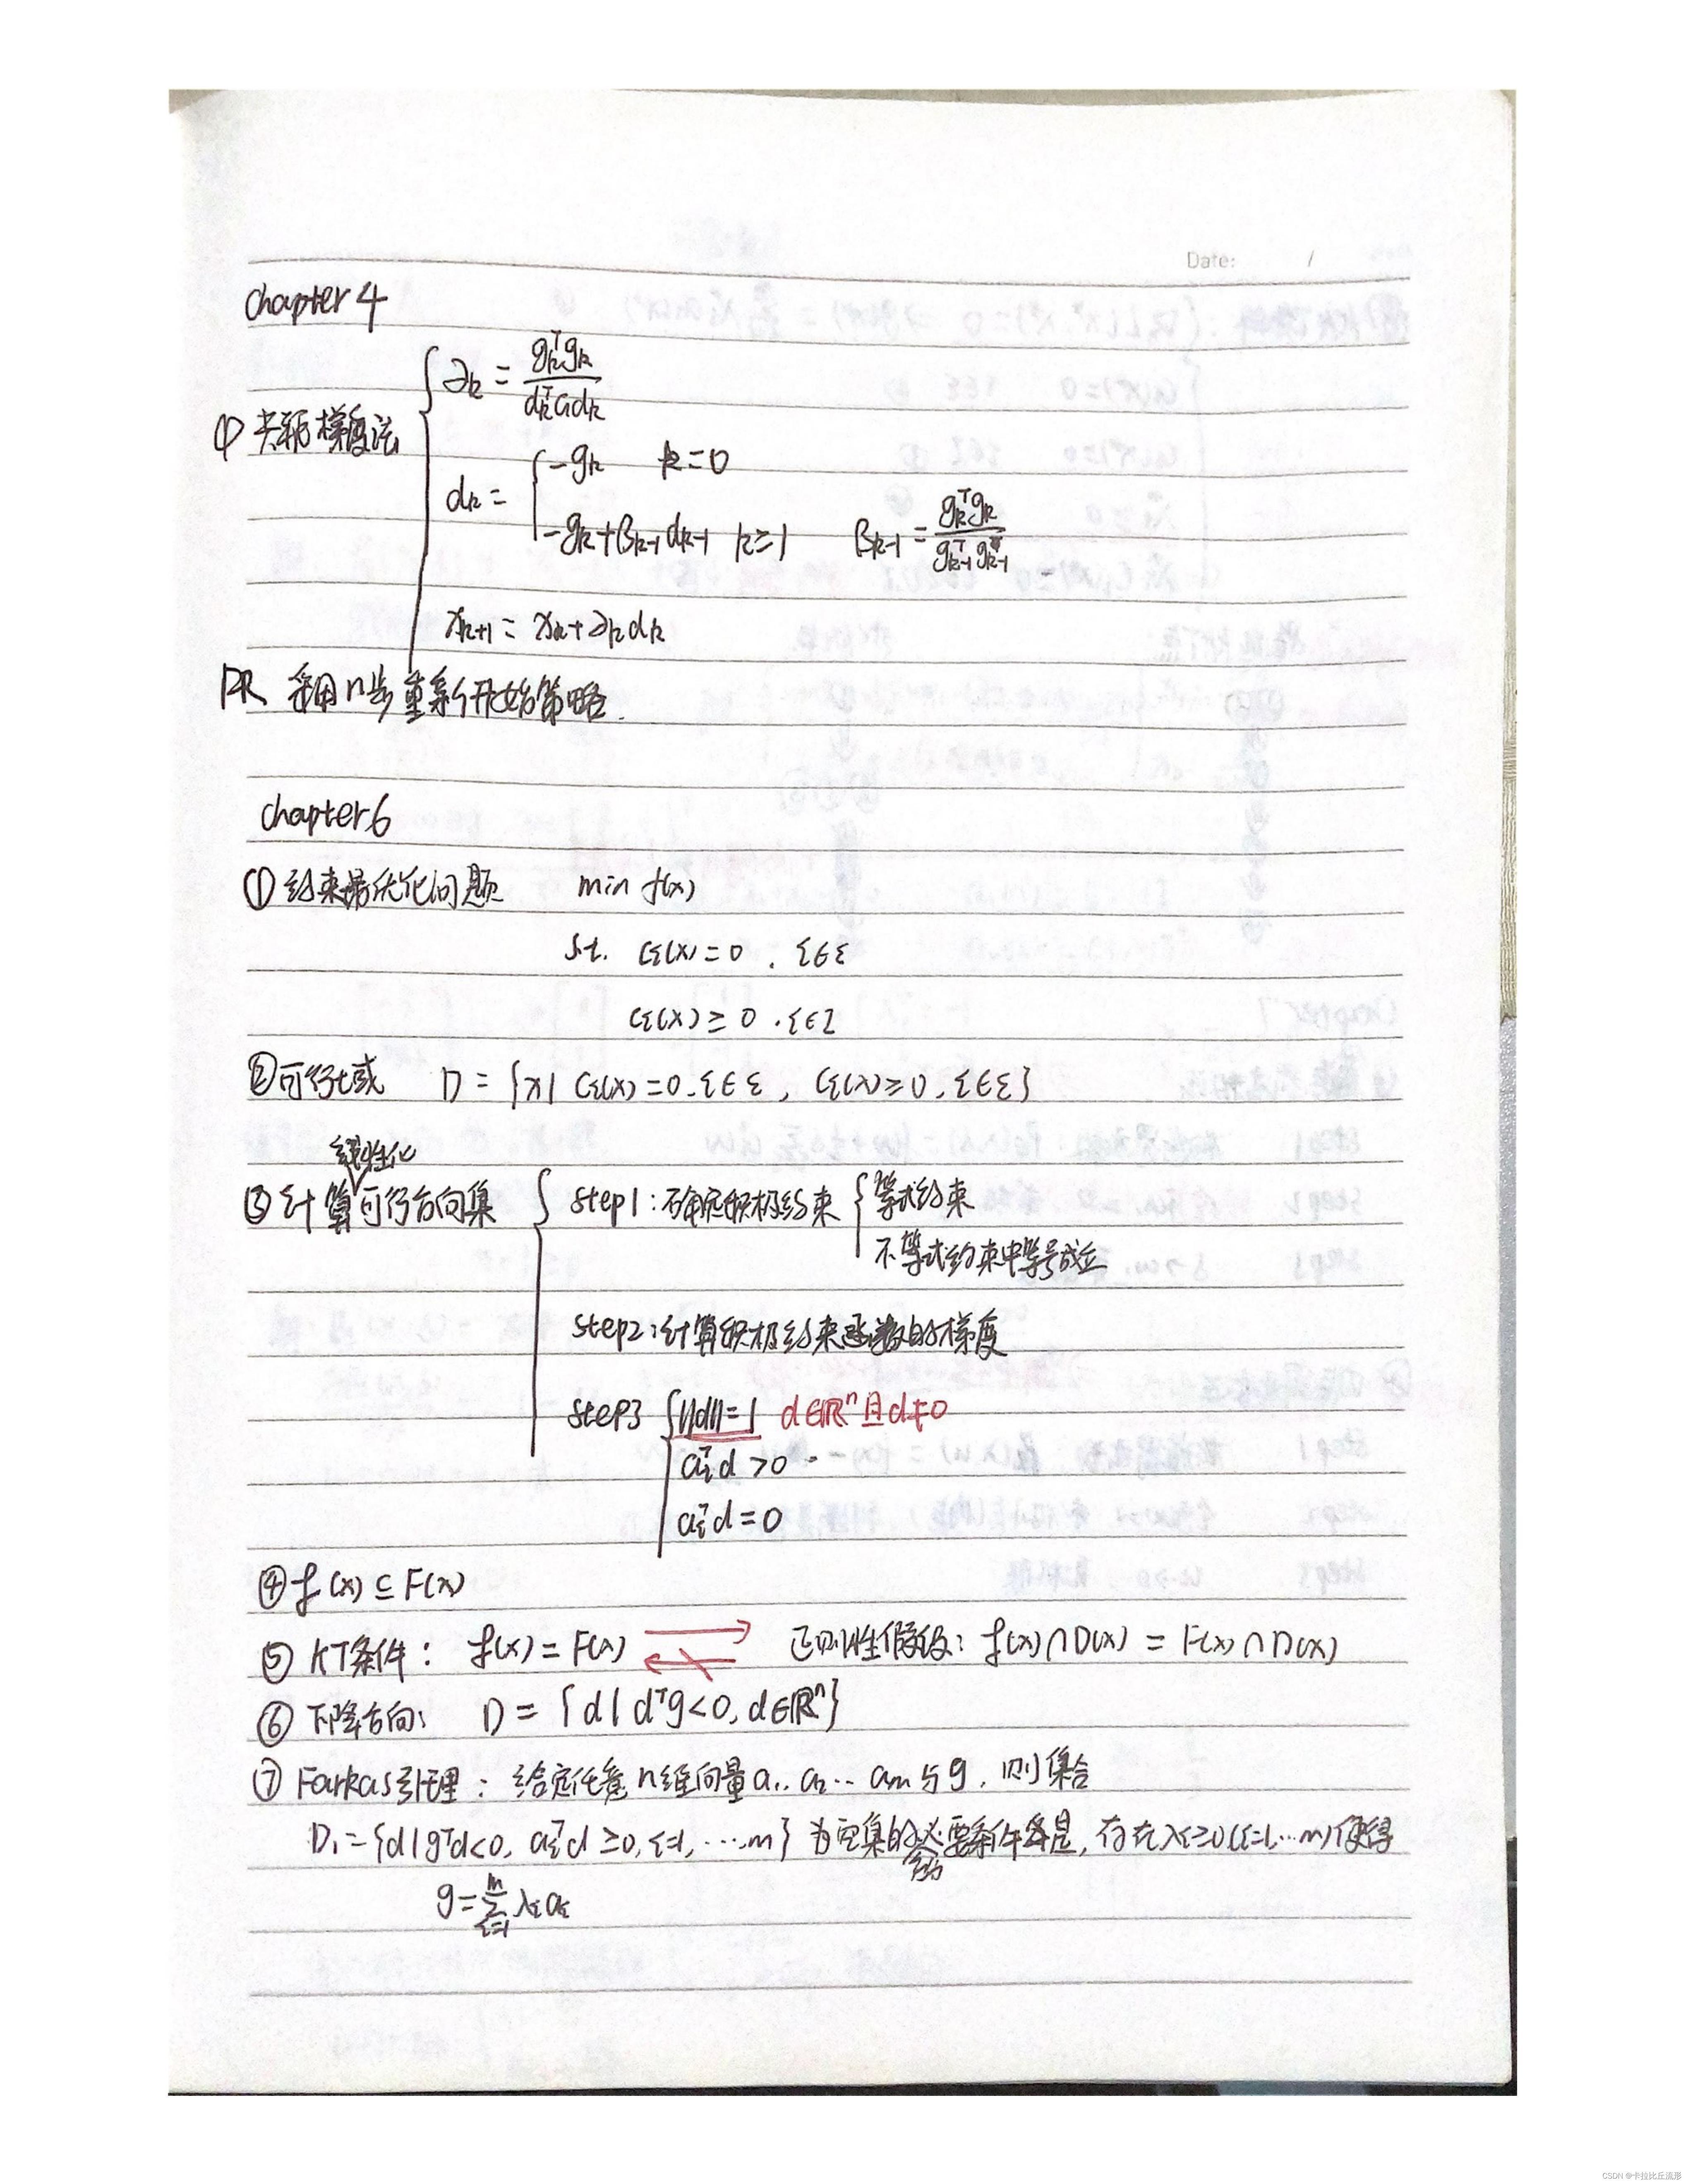 Date: /
chapter 4
① 共轭梯度法 { αₖ = gₖᵀgₖ / dₖᵀGdₖ
dₖ = { -gₖ k=0
-gₖ+βₖ₋₁dₖ₋₁ k≥1 βₖ₋₁ = gₖᵀgₖ / gₖ₋₁ᵀgₖ₋₁
xₖ₊₁ = xₖ+αₖdₖ
PR 采用n步重新开始策略.
chapter 6
① 约束最优化问题 min f(x)
s.t. cᵢ(x)=0 . i∈ε
cᵢ(x)≥0 . i∈I
② 可行域 D = {x| cᵢ(x)=0. i∈ε, cᵢ(x)≥0, i∈ε}
线性化
③ 计算可行方向集 { Step1:确定积极约束 { 等式约束
不等式约束中等号成立
Step2:计算积极约束函数的梯度
Step3 { ||d||=1 d∈ℝⁿ且d≠0
aᵢᵀd >0
aᵢᵀd =0
④ f(x) ⊆ F(x)
⑤ KT条件: f(x) = F(x) 正则性假设: f(x)∩D(x) = F(x)∩D(x)
⑥ 下降方向: D = {d| dᵀg<0, d∈ℝⁿ}
⑦ Farkas引理: 给定任意n维向量a₁,a₂… aₘ与g, 则集合
D₁={d|gᵀd<0, aᵢᵀd ≥0, i=1, …,m} 为空集的充要条件是, 存在λᵢ≥0(i=1,…m)使得
g=∑ᵢ₌₁ᵐ λᵢaᵢ
CSDN @卡拉比丘流形